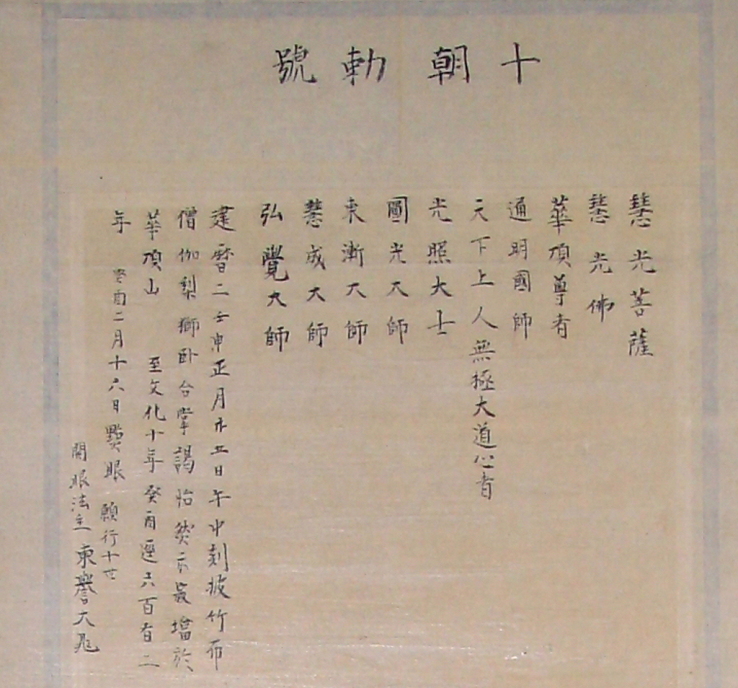 十朝勅號
慧光菩薩
慧光佛
華頂尊者
通明國師
天下上人無極大道心者
光照大士
圓光大師
東漸大師
慧成大師
弘覺大師
建暦二壬申正月廿五日午中刻披竹布
僧伽梨獅卧合掌謁怡然示寂塔於
華頂山 至文化十年癸酉逕六百有二
年 癸酉二月十六日點眼 願行十世
開眼法主 東譽大